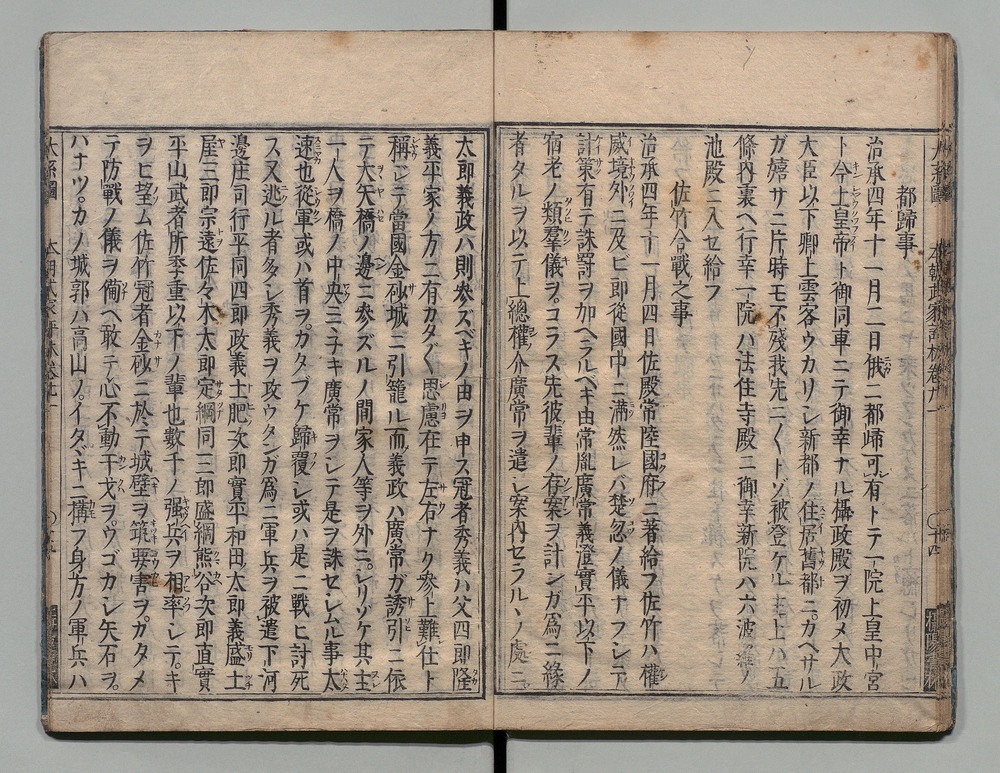 都歸事
治承四年十一月二日俄ニ都歸可有トテ一院上皇中宮
今上皇帝ト御同車ニテ御幸ナル攝政殿ヲ初メ大政
大臣以下卿上雲客ウカリシ新都ノ住居舊都ニカヘサル
ガ嬉サニ片時モ不殘我先ニ〱トゾ被登ケル主上ハ五
條内裏ヘ行幸一院ハ法住寺殿ニ御幸新院ハ六波羅ノ
池殿ニ入セ給フ
佐竹合戰之事
治承四年十一月四日佐殿常陸國府ニ著給フ佐竹ハ權
威境外ニ及ビ郎從國中ニ滿然レバ楚忽ノ儀ナフシテ
計策有テ誅罸ヲ加ヘラルベキ由常胤廣常義澄實平以下ノ
宿老ノ類羣儀ヲコラス先彼輩ノ存案ヲ計シガ爲ニ緣
者タルヲ以テ上總權介廣常ヲ遣シ案内セラル丶ノ處ニ
太郎義政ハ則參ズベキノ由ヲ申ス冠者秀義ハ父四郎隆
義平家ノ方ニ有カタ〲思慮在テ左右ナク參上難仕ト
稱シテ當國金砂城ニ引籠ル而義政ハ廣常ガ誘引ニ依
テ大矢橋ノ邊ニ參ズルノ間家人等ヲ外ニシリゾケ其主
一人ヲ橋ノ中央ニミチキ廣常ヲシテ是ヲ誅セシムル事太
速也從軍或ハ首ヲカタブケ歸覆シ或ハ是ニ戰ヒ討死
ス又逃ル者多シ秀義ヲ攻ウタンガ爲ニ軍兵ヲ被遣下河
邊庄司行平同四郎政義土肥次郎實平和田太郎義盛土
屋三郎宗遠佐々木太郎定綱同三郎盛綱熊谷次郎直實
平山武者所季重以下ノ輩也數千ノ强兵ヲ相率シテキ
ヲヒ望ム佐竹冠者金砂ニ於テ城壁ヲ築要害ヲカタメ
テ防戰ノ儀ヲ備ヘ敢テ心不動干戈ヲウゴカシ矢石ヲ
ハナツカノ城郭ハ高山ノイタダキニ構フ身方ノ軍兵ハ